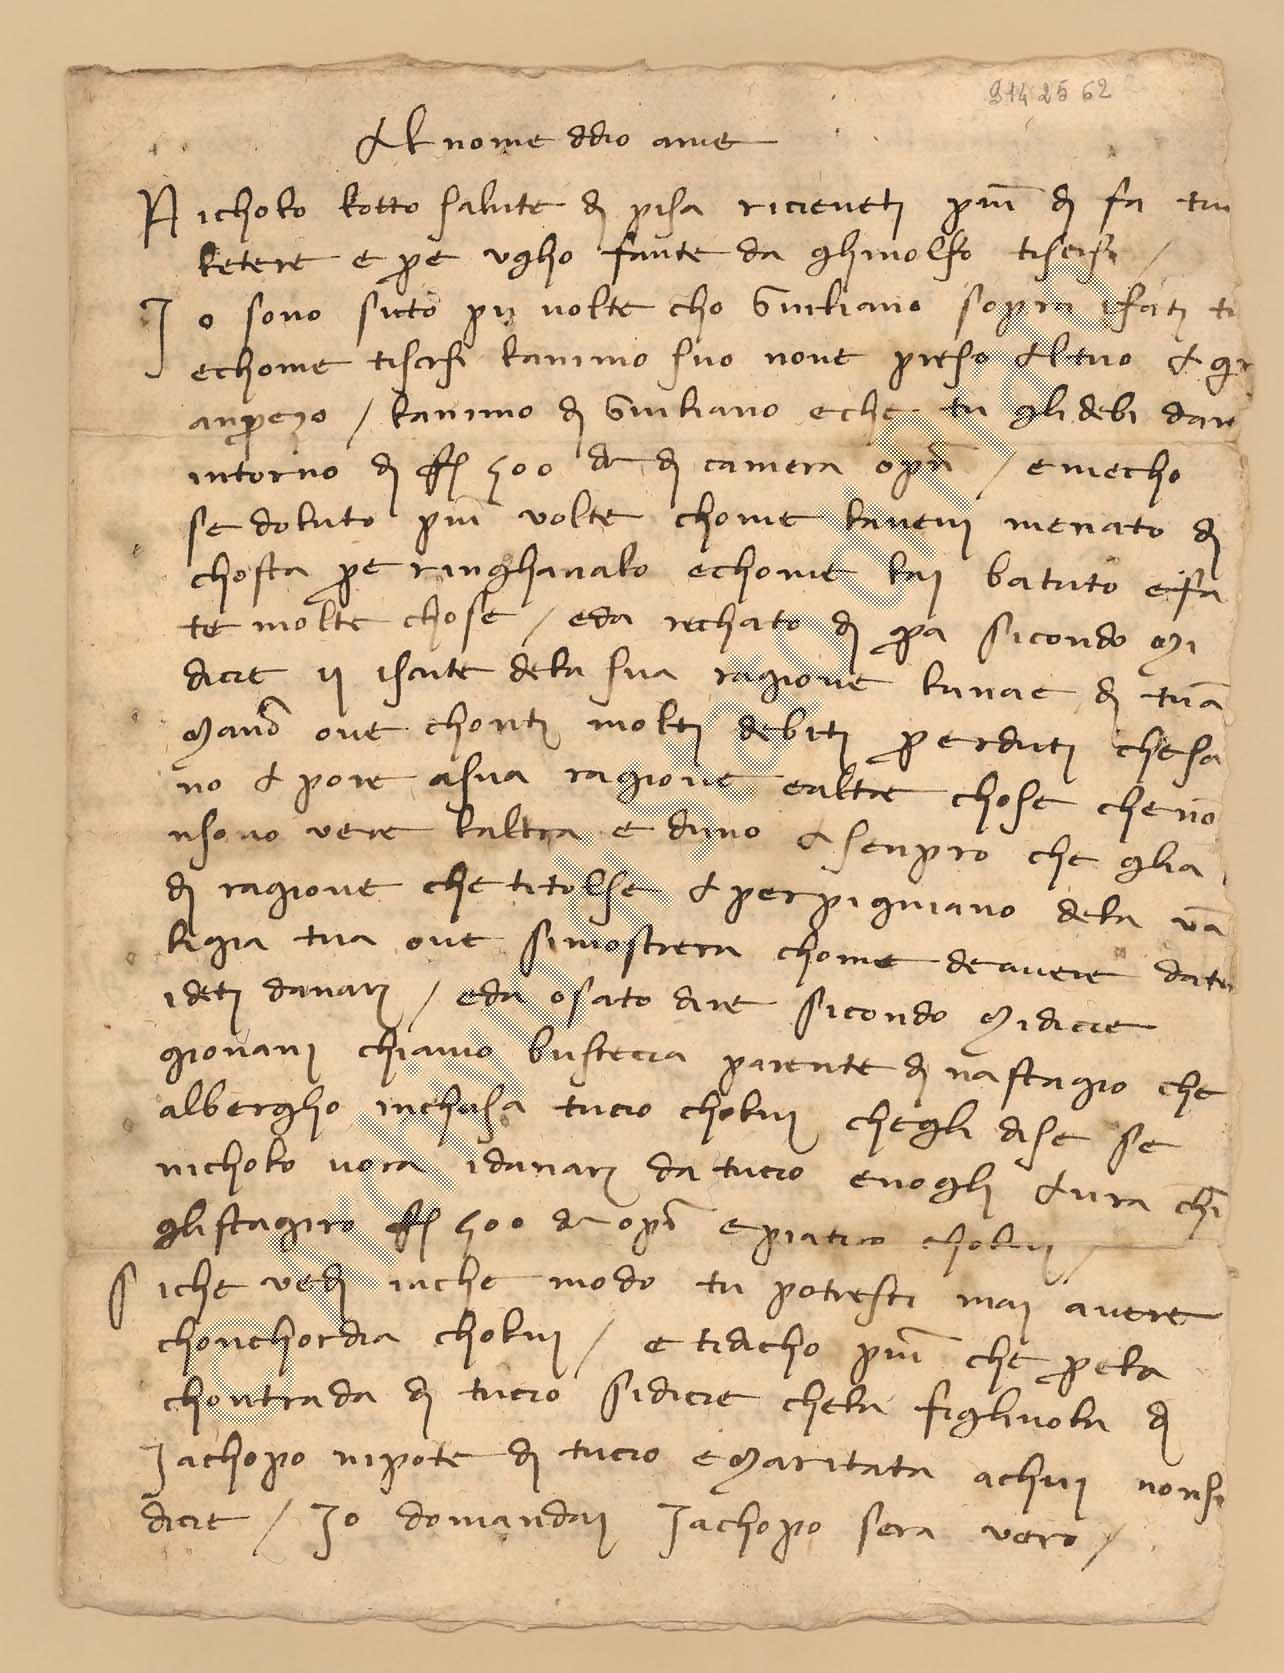 914 25 62
Al nome ddio ame
Nicholo lotto salute di pisa ricieveti piu di fa tua
letere e pe ugho fante da ghinolfo tiscrisi /
Io sono suto piu volte cho Giuliano sopra ifati
echome tiscrisi lanimo suo none preso altuo
/ lanimo di Giuliano eche tu gli debi dare
intorno di fl 500 di camera / e mecho
se doluto piu volte chome lavevi menato di
chosta pe ringhanalo echome lai batuto eifa
te molte chose / eda rechato di pa sicondo mi
dicie ischrite dela sua ragione di tua
mano ove chonti molti debiti perduti chesa
no a pore asua ragione ealtre chose cheno
nsono vere laltra e duno asenpro che glia
di ragione che titolse a perpigniano dela va
ligia tua ove simostrera chome deavere date
ideti danari / eda osato dire sicondo midicie
giovani chiamo busteccia parente di nastagio che
albergho inchasa tucio cholui chegli dise se
nicholo vora idanari da tucio enogli avra chi
gli stagiro fl 500 e piatiro cholui /
Siche vedi inche modo tu potresti mai avere
chonchordia cholui / e tidicho piu che pela
chontrada di tucio sidicie chela figliuola di
Jachopo nipote di tucio e maritata achui nonsi
dicie / Io domandai Jachopo sera vero /